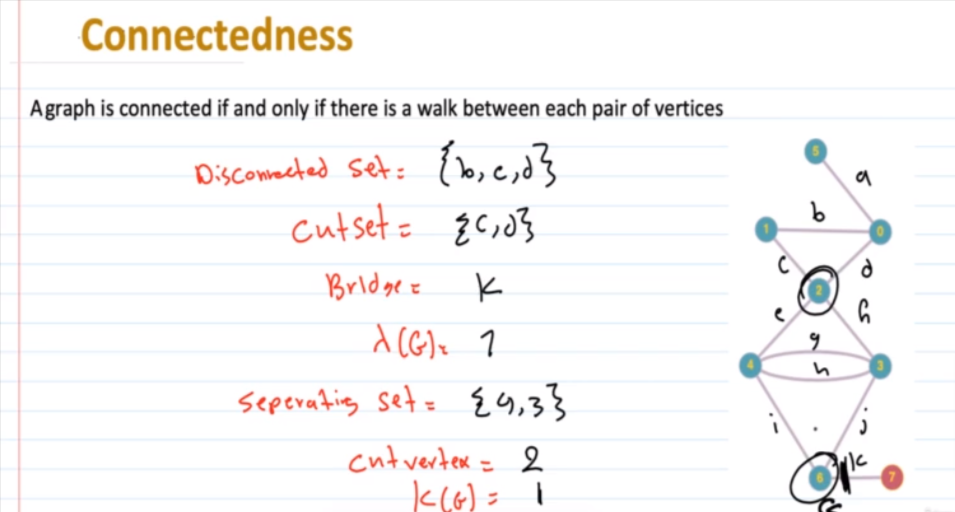 Connectedness
A graph is connected if and only if there is a walk between each pair of vertices
Disconnected set = {b, c, d}
Cutset = {c, d}
Bridge = k
λ(G) = 1
Seperating set = {4, 3}
Cutvertex = 2
K(G) = 1
5
a
b
1
0
c
d
2
e
h
g
4
h
3
i
j
k
6
7